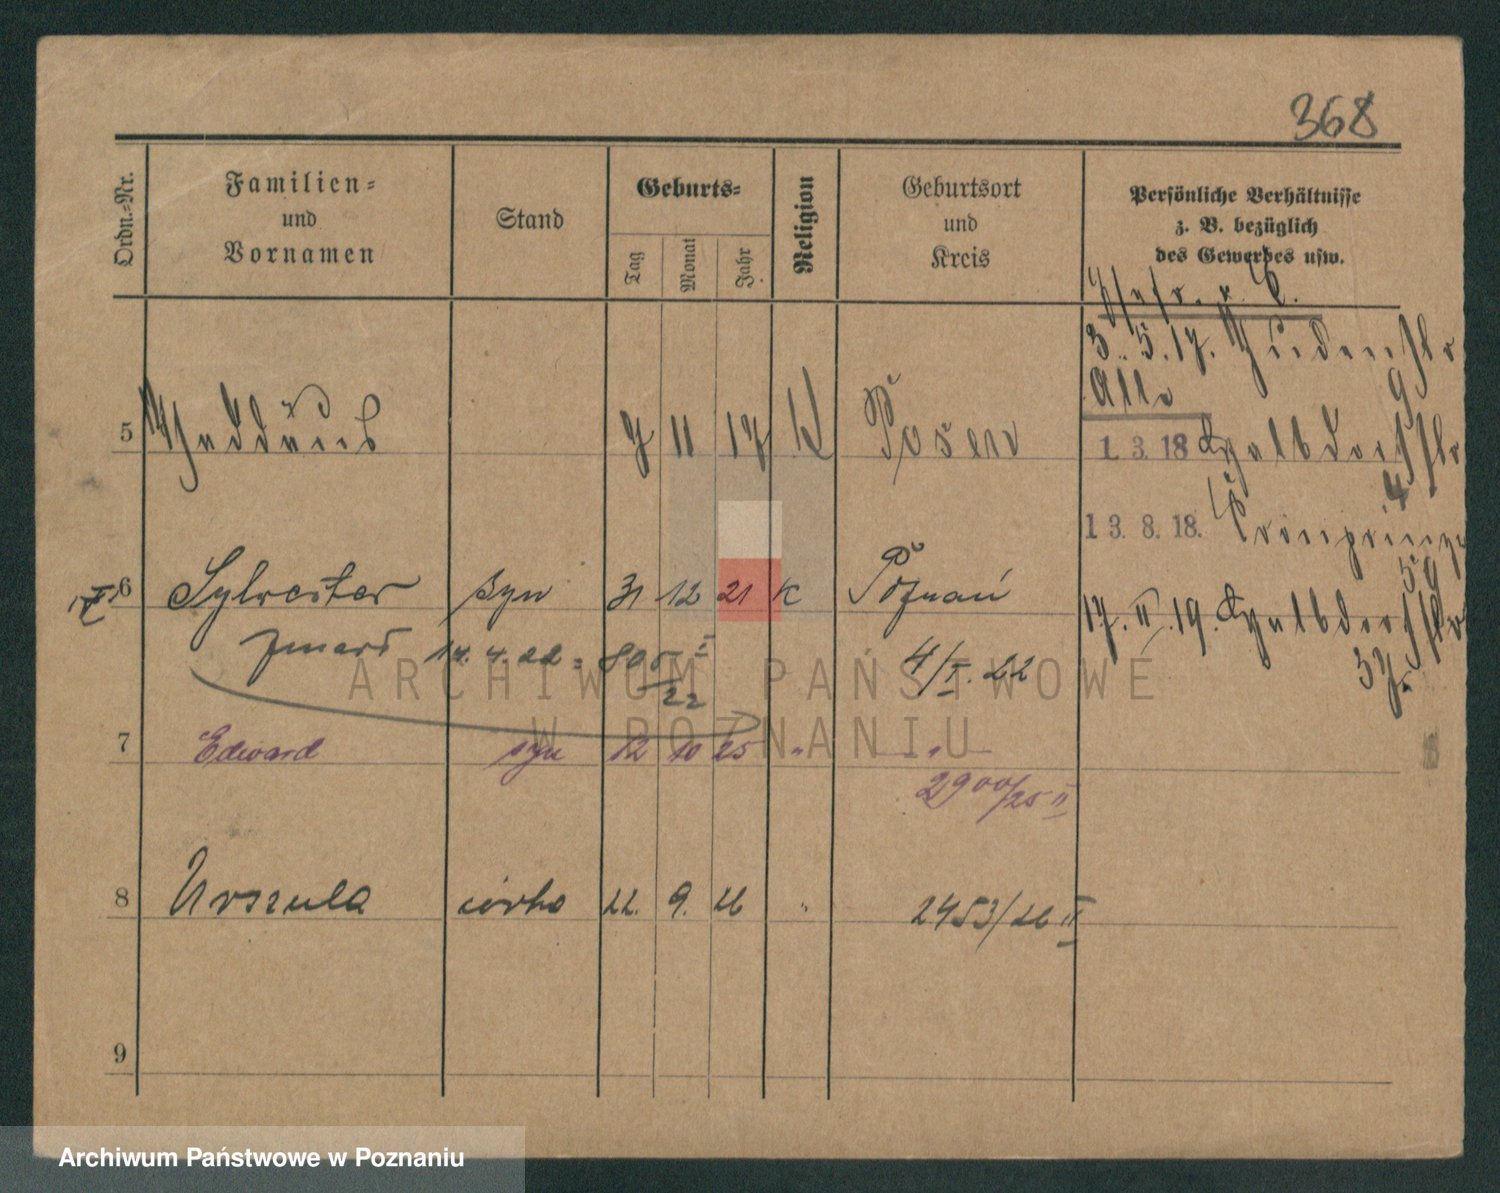 368
Ordn.-Nr.
Familien-
und
Vornamen
Stand
Geburts-
Tag
Monat
Jahr
Religion
Geburtsort
und
Kreis
Persönliche Verhältnisse
z. B. bezüglich
des Gewerbes usw.
3. 5. 17.
Alle
9
5 Thaddäus 7 11 17 K Posen
1. 3. 18
4
1 3. 8. 18. Kronprinz
59
6 Sylvester syn 31 12 21 K Poznań
17. II. 19.
37.
zmarł 14. 4. 22 = 805 I
22
4/I. 22
ARCHIWUM PAŃSTWOWE
W POZNANIU
7 Edward syn 12 10 25 " "
2900/25 II
8 Urszula córka 22. 9. 26 "
2453/26 II
9
Archiwum Państwowe w Poznaniu